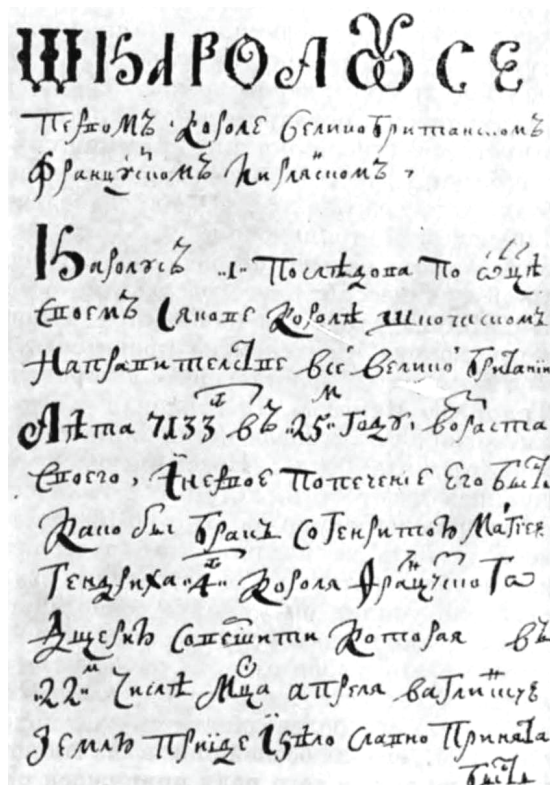 Ѡ КАРОЛꙊСЕ
Первомъ Королѣ Великобританскомъ
Францꙋскомъ Иирляскомъ,
Каролꙋсъ "1" Послѣдова По ѿцѣ
Своемъ Іякове Королѣ шкоческомъ
Направителстве все великобританіи
Лѣта 7133 въ "25"м годꙋ, возраста
Своего, Іпервое попечение Его Быст
Како бы бракъ соГенритою Мариею
Гендриха "4" Короля Францꙋского Га
Дщерию Совершити Которая въ
"22"м числѣ Мца апреля ваглинскꙋю
Землю Пріиде Ізѣло славно Принята
Быст